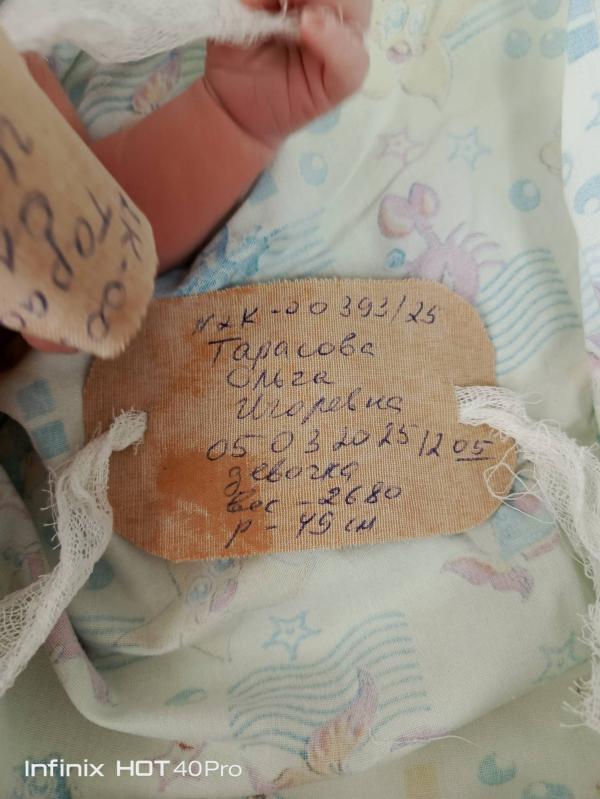 NхК-00393/25
Тарасова
Ольга
Игоревна
05 03 2025 12 05
девочка
вес - 2680
р - 49 см
Infinix HOT 40Pro